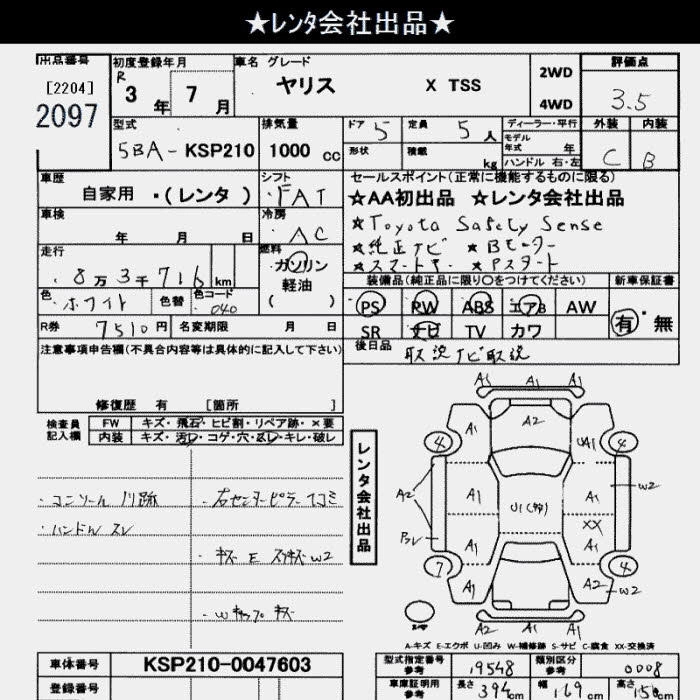 ★レンタ会社出品★
出品番号 初度登録年月 車名 グレード 評価点
[2204] R 3年 7月 ヤリス X TSS 2WD 3.5
2097 4WD
型式 排気量 ドア 5 定員 5人 ディーラー・平行 外装 内装
5BA-KSP210 1000cc 形状 積載 kg モデル年式 年 C B
ハンドル 右・左
車歴 シフト セールスポイント(正常に機能するものに限る)
自家用・(レンタ) FAT ★AA初出品 ★レンタ会社出品
車検 冷房 ★Toyota Safety Sense
年 月 日 AC ★純正ナビ ★Bモーター
走行 燃料 ★スマートキー ★Pスタート
8万3千716km ガソリン 装備品(純正品に限り○をつけてください) 新車保証書
色 色替 色コード 軽油 PS PW ABS エアB AW 有・無
ホワイト 040 ( ) SR ナビ TV カワ
R券 7510円 名変期限 月 日 後日品 取説ナビ取説
注意事項申告欄(不具合内容等は具体的に記入して下さい)
修復歴 有 [箇所 ]
検査員記入欄 FW キズ・飛石・ヒビ割・リペア跡・×要
内装 キズ・汚レ・コゲ・穴・スレ・キレ・破レ
・コンソール 川跡 ・右センターピラー凹ミ
・ハンドル スレ
・キズ E スリキズ W2
・Wキャップ キズ
レンタ会社出品
A1 A1 A1
A1 A2 UA1
4 4
A2 A1 U1(多) A1 W2
XX
スレ A1 A1
7 4
A1 A2 W2
A2 A1 A1
A-キズ E-エクボ U-凹み W-補修跡 S-サビ C-腐食 XX-交換済
車体番号 KSP210-0047603 型式指定番号 参考 19548 類別区分 参考 0008
登録番号 車庫証明用 参考 長さ 394cm 幅 169cm 高さ 150cm